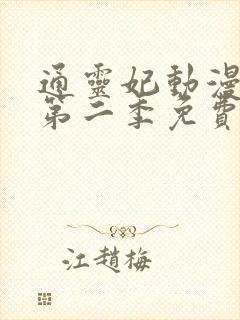 通靈妃動漫
第二季免費
江趙梅